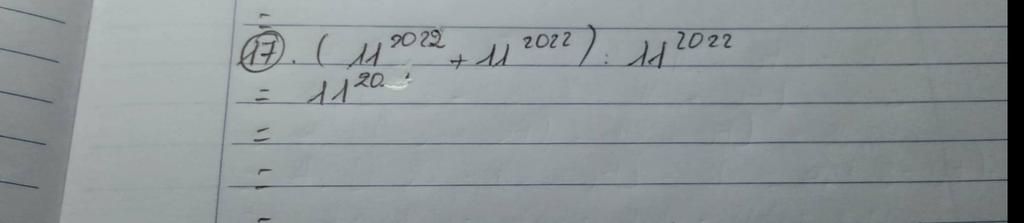 =
17. (11^2022 + 11^2022) : 11^2022
= 11^20
=
=
=